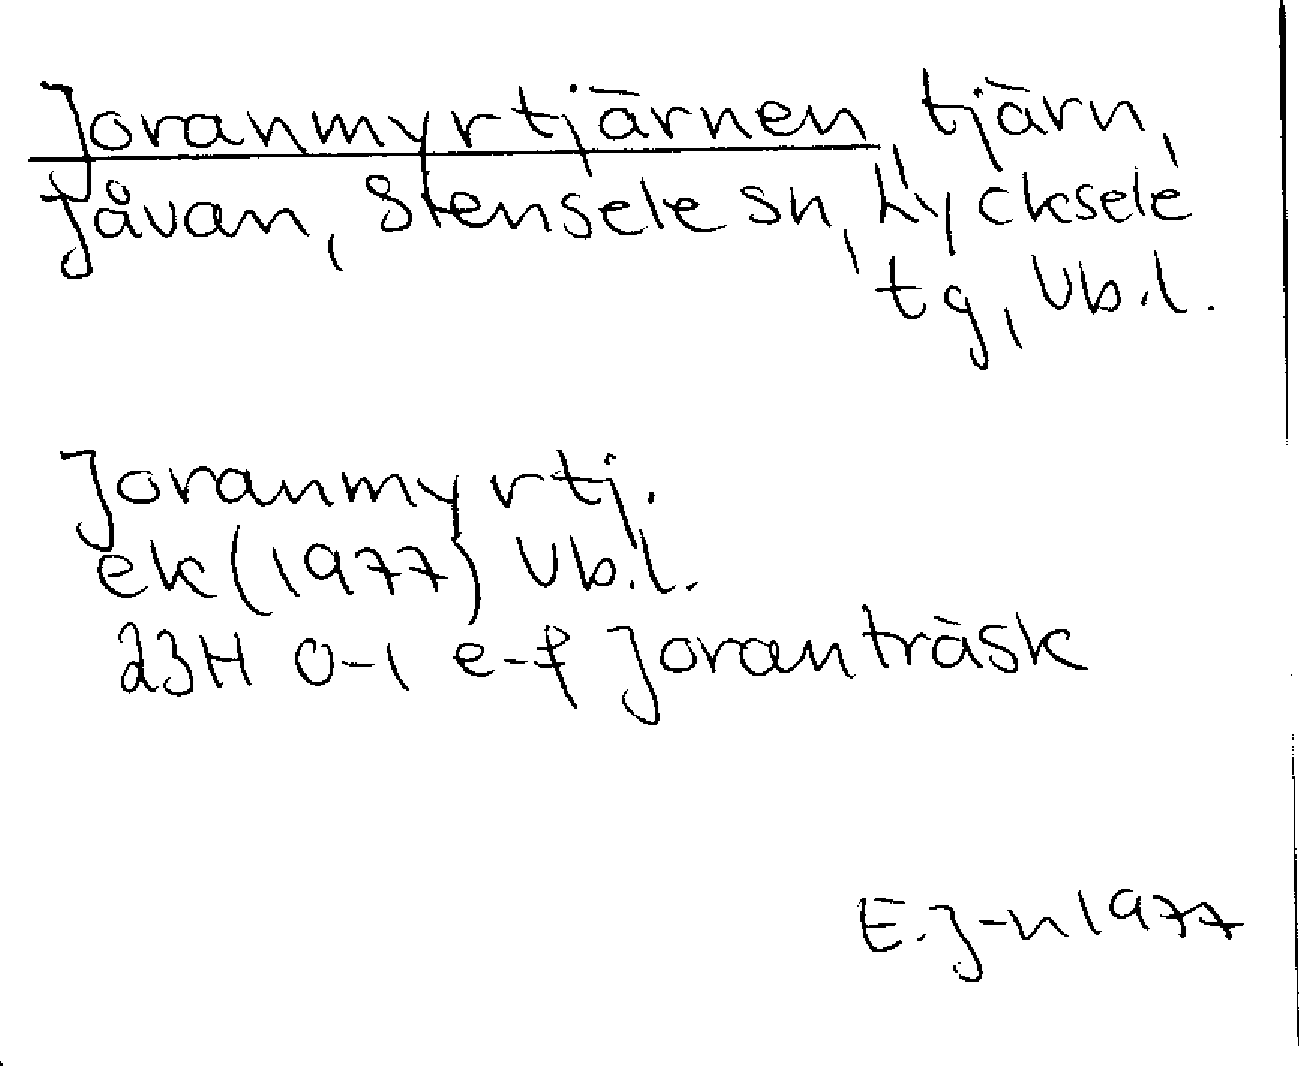 Joranmyrtjärnen, tjärn,
Jåvan, Stensele sn, Lycksele
tg, Vb.l.
Joranmyrtj.
ek (1977) Vb.l.
23H 0-1 e-f Joranträsk
E.J-n 1977